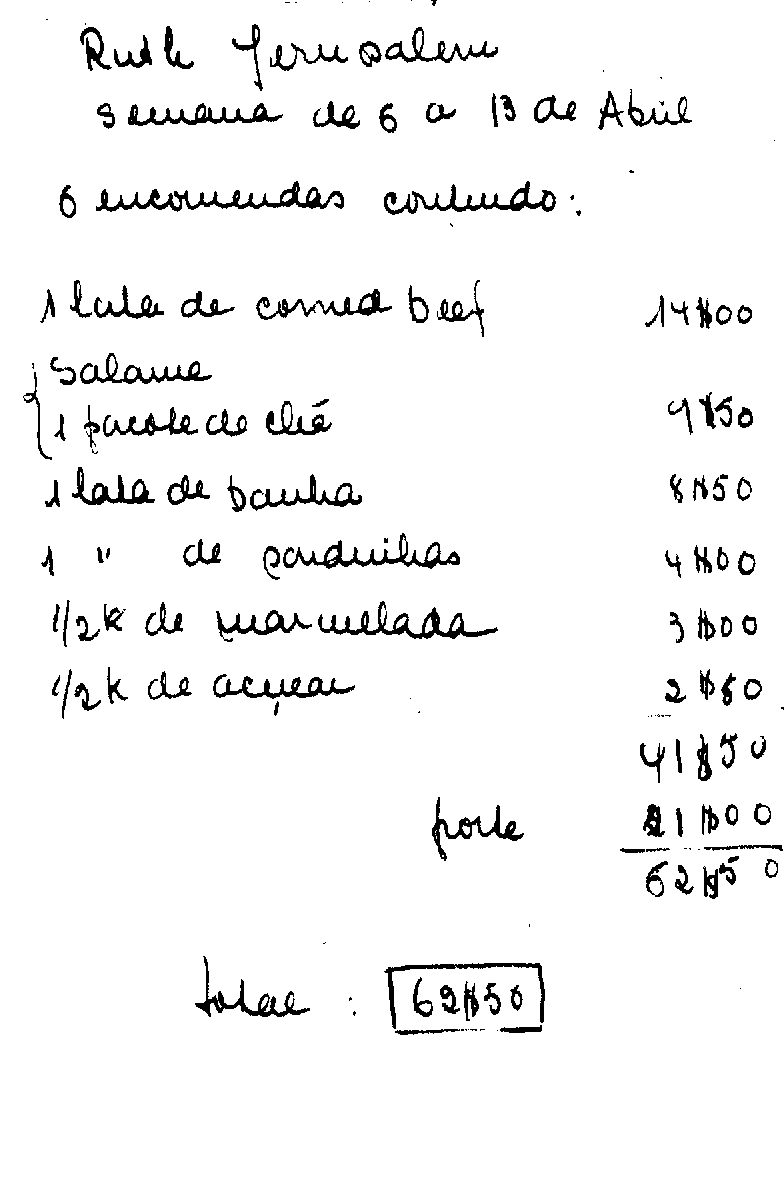 Ruth Jerusalem
semana de 6 a 13 de Abril
6 encomendas contendo:
1 lata de corned beef 14$00
Salame
1 pacote de chá 9$50
1 lata de banha 8$50
1 " de sardinhas 4$00
1/2k de marmelada 3$00
1/2k de açucar 2$50
41$50
porte 21$00
62$50
total : 62$50